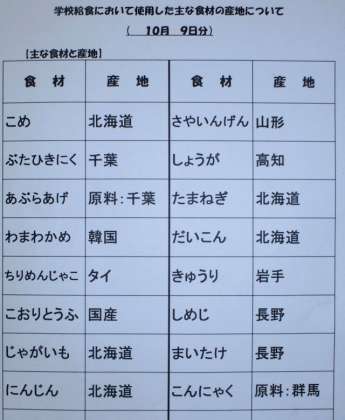 学校給食において使用した主な食材の産地について
( 10月 9日分)
[主な食材と産地]
食 材 産 地 食 材 産 地
こめ 北海道 さやいんげん 山形
ぶたひきにく 千葉 しょうが 高知
あぶらあげ 原料:千葉 たまねぎ 北海道
わまわかめ 韓国 だいこん 北海道
ちりめんじゃこ タイ きゅうり 岩手
こおりとうふ 国産 しめじ 長野
じゃがいも 北海道 まいたけ 長野
にんじん 北海道 こんにゃく 原料:群馬